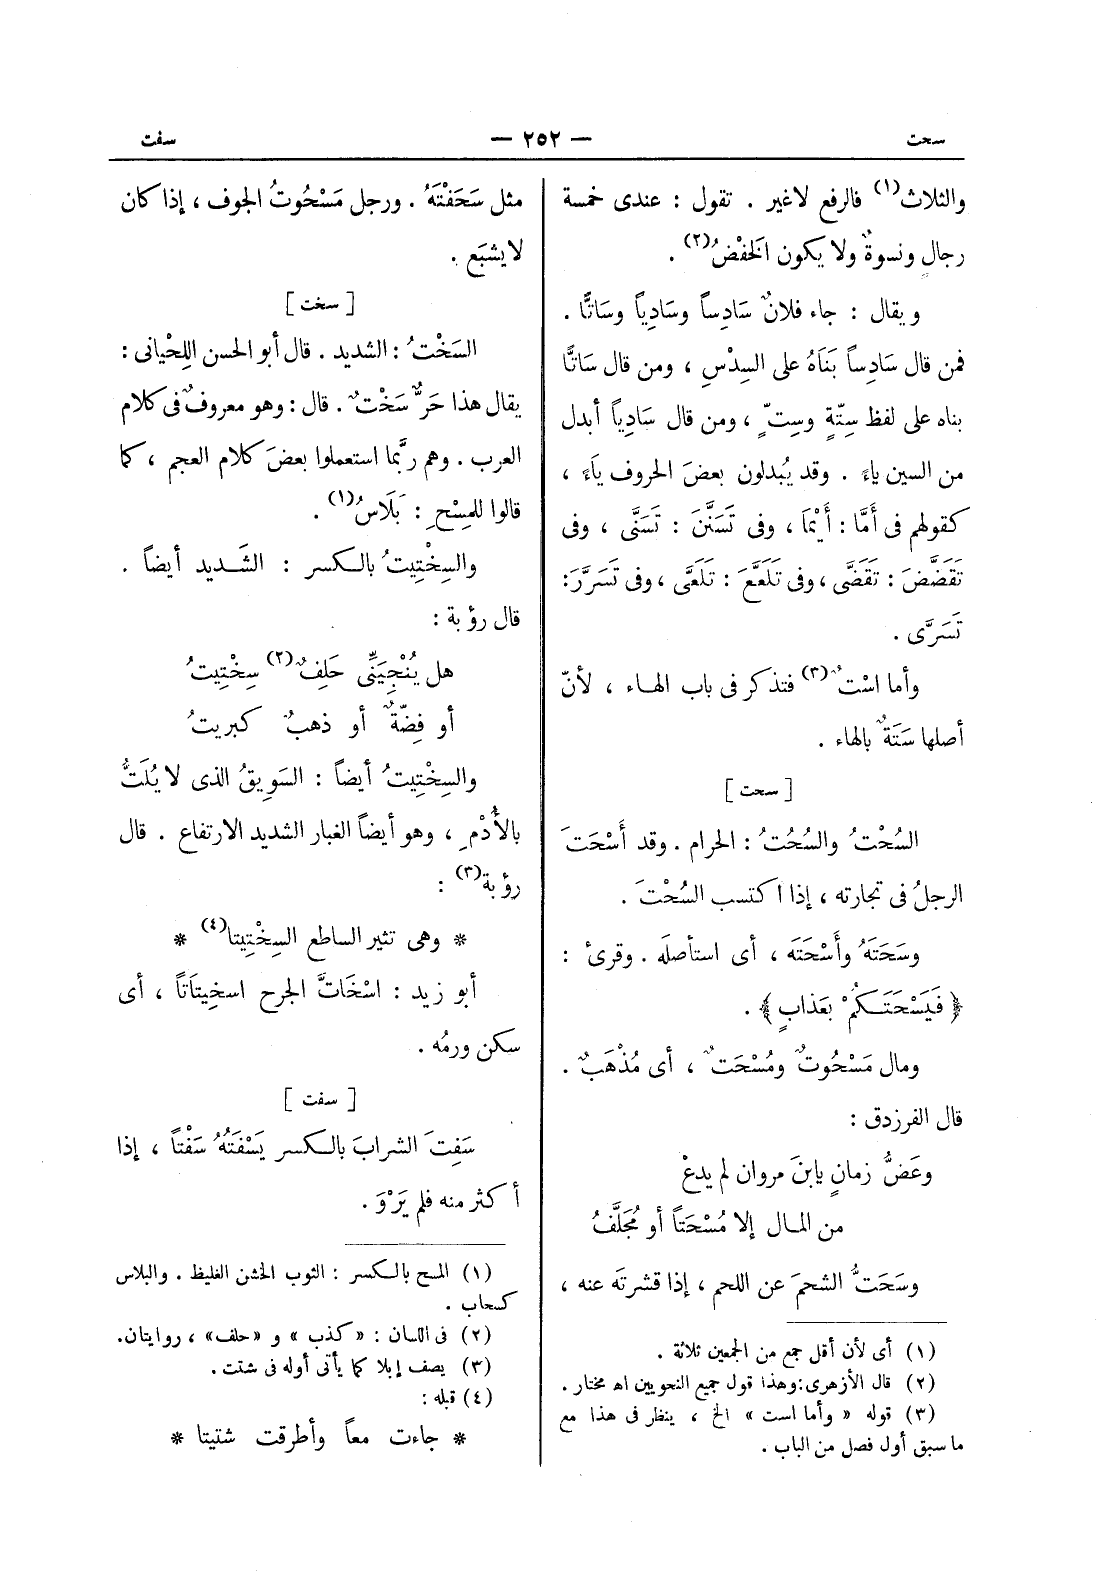 سحت — ٢٥٢ — سفت
والثلاث(١) فالرفع لاغير . تقول : عندى خمسة
رجالٍ ونسوةٌ ولا يكون الخفْضُ(٢) .
ويقال : جاء فلانٌ سَادِساً وسَادِياً وسَاتًّا .
فمن قال سَادِساً بَنَاهُ على السِدْسِ ، ومن قال سَاتًّا
بناه على لفظ سِتّةٍ وسِتٍّ ، ومن قال سَادِياً أبدل
من السين ياءً . وقد يُبدلون بعضَ الحروف ياءً ،
كقولهم فى أَمَّا : أَيْمَا ، وفى تَسَنَّنَ : تَسَنَّى ، وفى
تَقَضَّضَ : تَقَضَّى ، وفى تَلَعَّعَ : تَلَعَّى ، وفى تَسَرَّرَ:
تَسَرَّى .
وأما اسْتٌ(٣) فتذكر فى باب الهاء ، لأنّ
أصلها سَتَهٌ بالهاء .
[ سحت ]
السُحْتُ والسُحُتُ : الحرام . وقد أَسْحَتَ
الرجلُ فى تجارته ، إذا اكتسب السُحْتَ .
وسَحَتَهُ وأَسْحَتَه ، أى استأصلَه . وقرئ :
﴿ فَيَسْحَتَكُمْ بعَذابٍ ﴾ .
ومال مَسْحُوتٌ ومُسْحَتٌ ، أى مُذْهَبٌ .
قال الفرزدق :
وعَضُّ زمانٍ يابنَ مروان لم يدعْ
من المال إلا مُسْحَتاً أو مُجَلَّفُ
وسَحَتُّ الشحمَ عن اللحم ، إذا قشرتَه عنه ،
(١) أى لأن أقل جمع من الجمعين ثلاثة .
(٢) قال الأزهرى : وهذا قول جميع النحويين اه مختار .
(٣) قوله « وأما است » الخ ، ينظر فى هذا مع
ما سبق أول فصل من الباب .
مثل سَحَفْتَهُ . ورجل مَسْحُوتُ الجوف ، إذا كان
لا يشبَع .
[ سخت ]
السَخْتُ : الشديد . قال أبو الحسن اللِحْيانى :
يقال هذا حَرٌّ سَخْتٌ . قال : وهو معروفٌ فى كلام
العرب . وهم ربَّما استعملوا بعضَ كلام العجم ، كما
قالوا للمِسْحِ : بَلَاسُ(١) .
والسِخْتِيتُ بالكسر : الشَديد أيضاً .
قال رؤبة :
هل يُنْجِيَنِّى حَلِفٌ(٢) سِخْتِيتُ
أو فِضّةٌ أو ذهبٌ كبريتُ
والسِخْتِيتُ أيضاً : السَوِيقُ الذى لا يُلَتُّ
بالأُدْمِ ، وهو أيضاً الغبار الشديد الارتفاع . قال
رؤبة(٣) :
* وهى تثير الساطع السِخْتِيتا(٤) *
أبو زيد : اسْخَاتَّ الجرح اسخِيتَاتاً ، أى
سكن ورمُه .
[ سفت ]
سَفِتَ الشرابَ بالكسر يَسْفَتُهُ سَفْتاً ، إذا
أكثر منه فلم يَرْوَ .
(١) المسح بالكسر : الثوب الخشن الغليظ . والبلاس
كسحاب .
(٢) فى اللسان : « كذب » و « حلف » ، روايتان.
(٣) يصف إبلا كما يأتى أوله فى شتت .
(٤) قبله :
* جاءت معاً وأطرقت شتيتا *